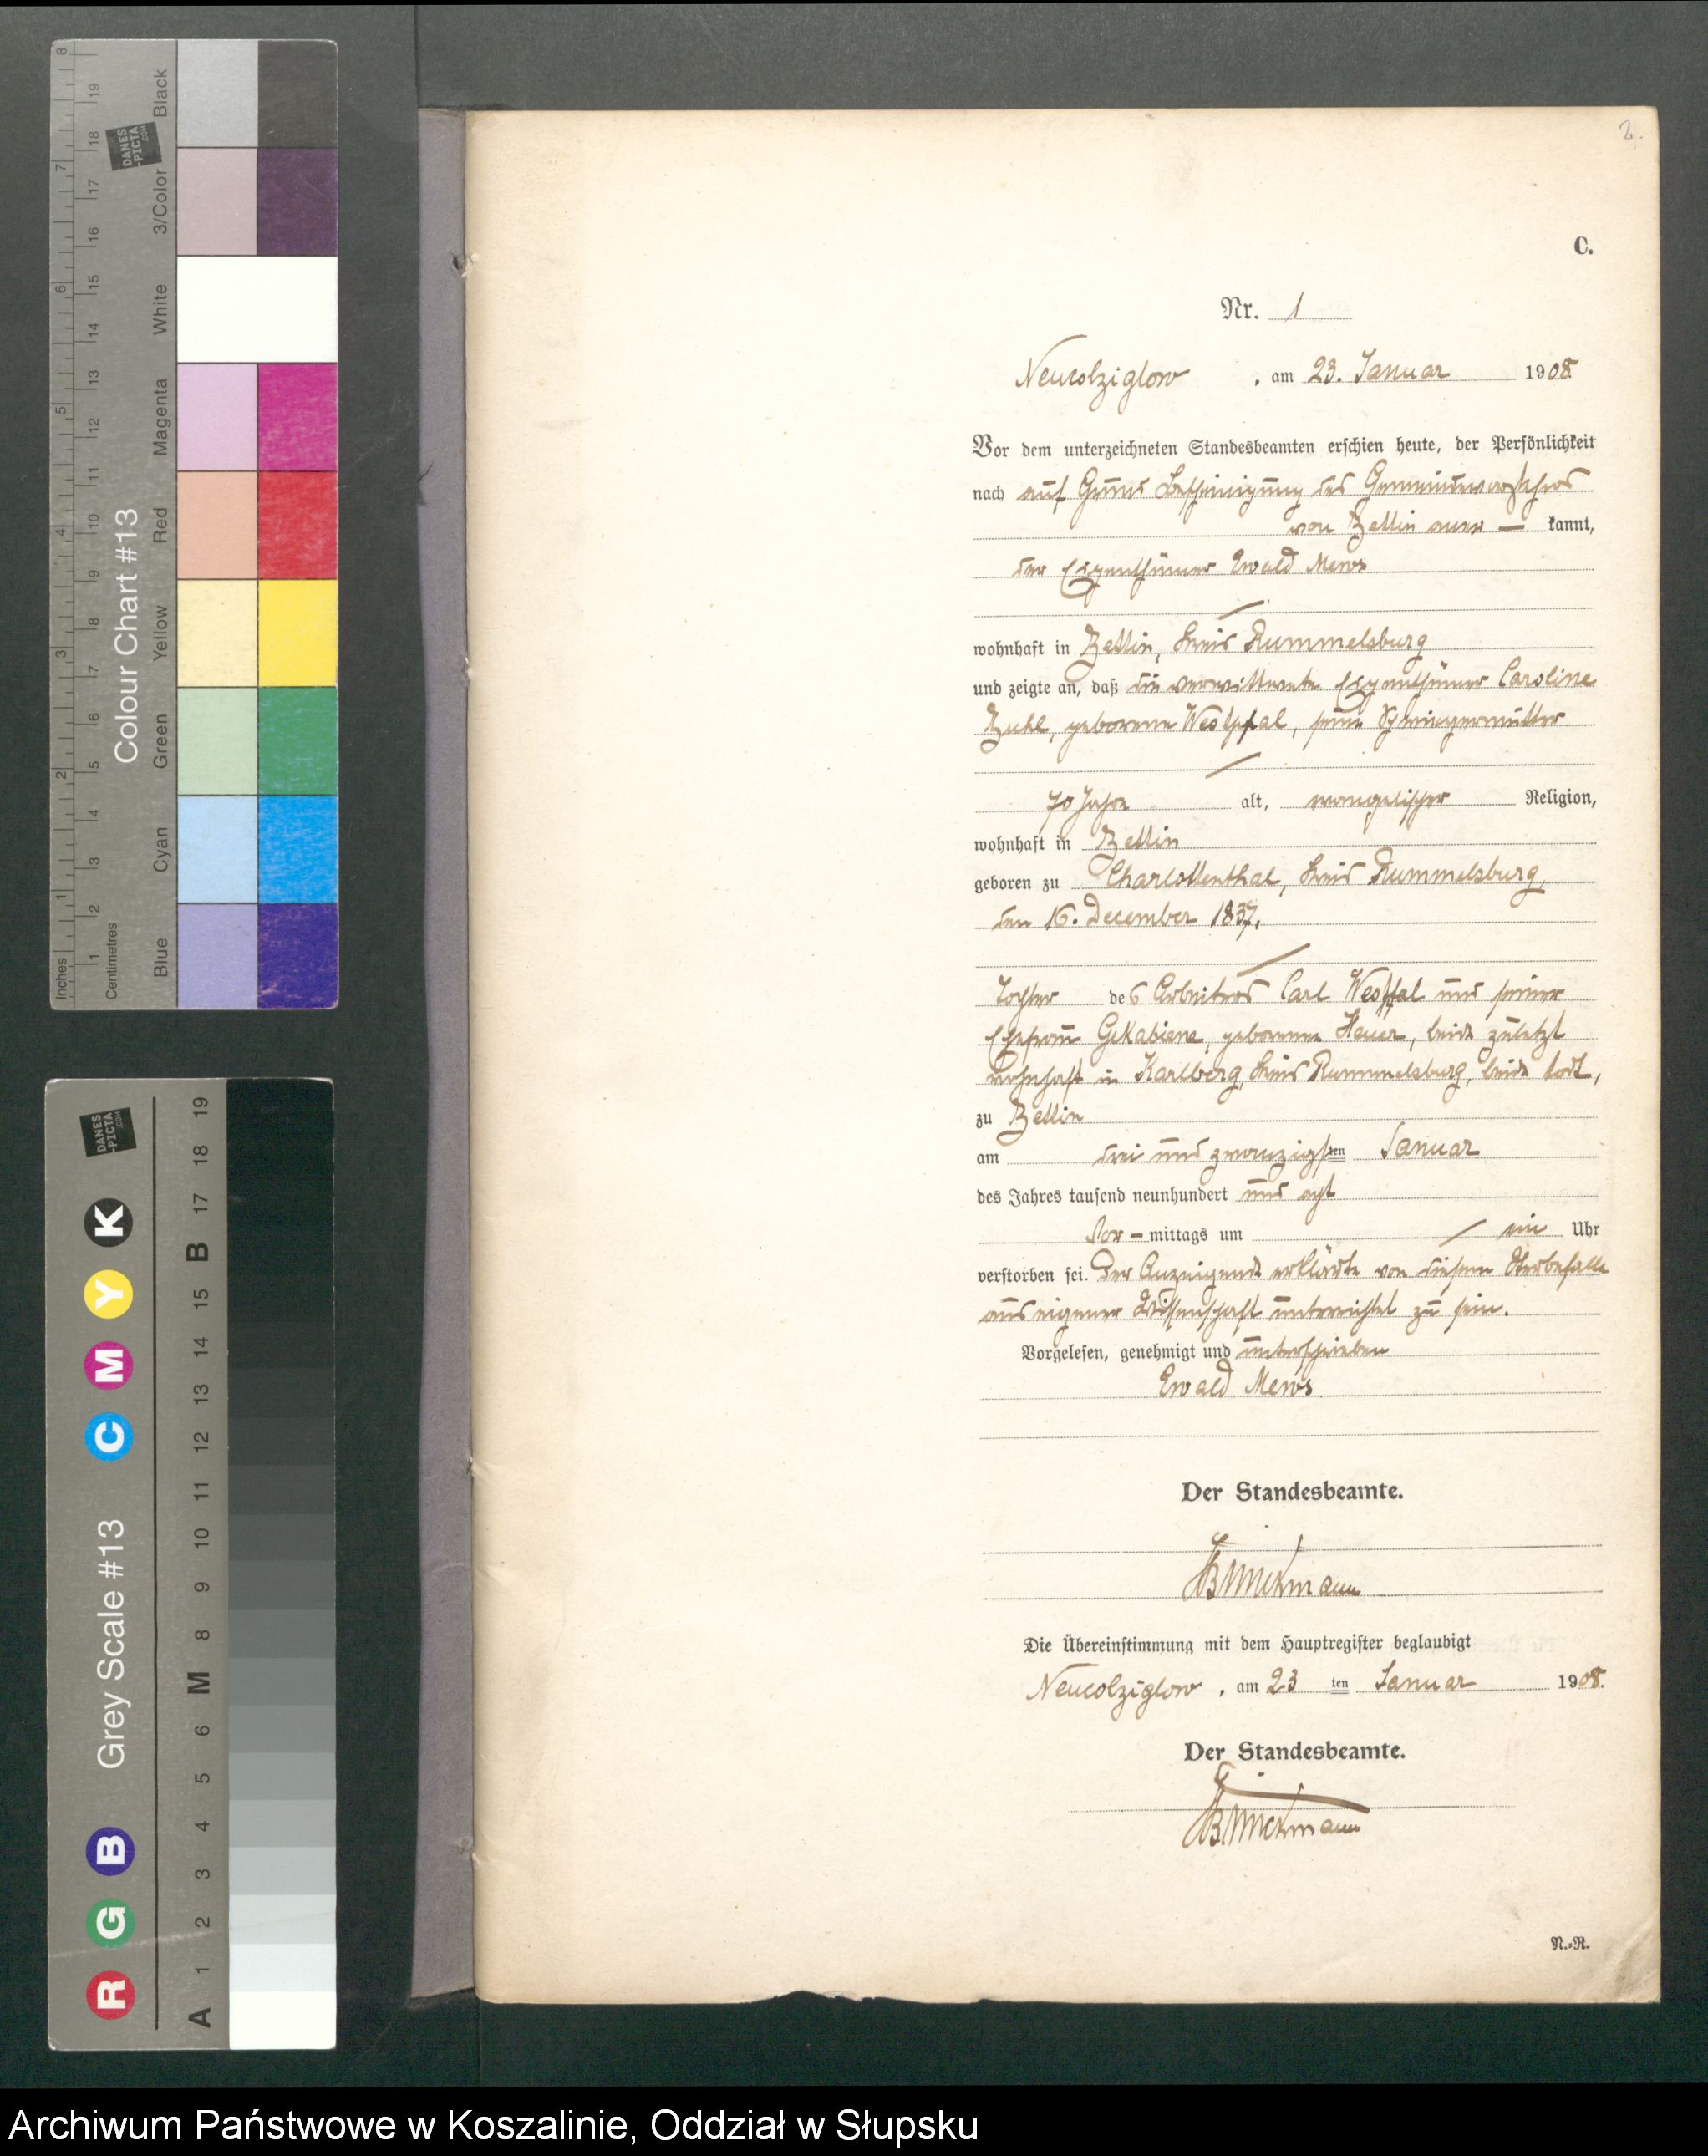 2.
C.
Nr. 1
Neucolziglow, am 23. Januar 1908
Vor dem unterzeichneten Standesbeamten erschien heute, der Persönlichkeit
nach auf Grund Bescheinigung des Gemeindevorstehers
von Zettin aner — kannt,
der Eigenthümer Ewald Mews
wohnhaft in Zettin, Kreis Rummelsburg
und zeigte an, daß die verwittwete Eigenthümer Caroline
geborene Westphal, seine Schwiegermutter
70 Jahre alt, evangelischer Religion,
wohnhaft in Zettin
geboren zu Charlottenthal, Kreis Rummelsburg,
den 16. December 1837,
Tochter des Arbeiters Carl Westfal und seiner
Ehefrau geborenen Heuer, beide zuletzt
wohnhaft in Karlberg, Kreis Rummelsburg, beide todt,
zu Zettin
am drei und zwanzigsten Januar
des Jahres tausend neunhundert und acht
Vor-mittags um ein Uhr
verstorben sei. Der Anzeigende erklärte von diesem Sterbefalle
aus eigener Wissenschaft unterrichtet zu sein.
Vorgelesen, genehmigt und unterschrieben
Ewald Mews
Der Standesbeamte.
Die Übereinstimmung mit dem Hauptregister beglaubigt
Neucolziglow, am 23 ten Januar 1908.
Der Standesbeamte.
N.-R.
Colour Chart #13
Inches 1 2 3 4 5 6 7 8
Centimetres 1 2 3 4 5 6 7 8 9 10 11 12 13 14 15 16 17 18 19
Blue Cyan Green Yellow Red Magenta White 3/Color Black
DANES
-PICTA
.COM
Grey Scale #13
R G B C M Y K
A 1 2 3 4 5 6 M 8 9 10 11 12 13 14 15 B 17 18 19
DANES
-PICTA
.COM
Archiwum Państwowe w Koszalinie, Oddział w Słupsku